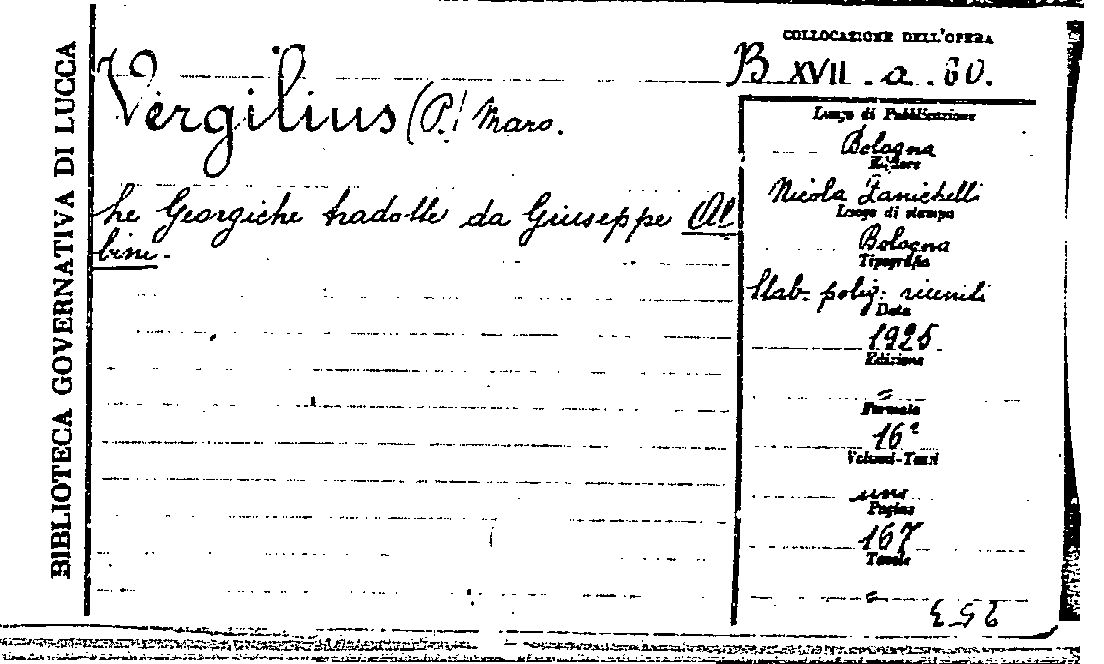 BIBLIOTECA GOVERNATIVA DI LUCCA
COLLOCAZIONE DELL'OPERA
B XVII . a . 60.
Vergilius (P.) Maro.
Le Georgiche tradotte da Giuseppe Al
bini.
Luogo di Pubblicazione
Bologna
Editore
Nicola Zanichelli
Luogo di stampa
Bologna
Tipografia
Stab. polig. riuniti
Data
1925
Edizione
Formato
16°
Volumi-Tomi
uno
Pagine
167
Tavole